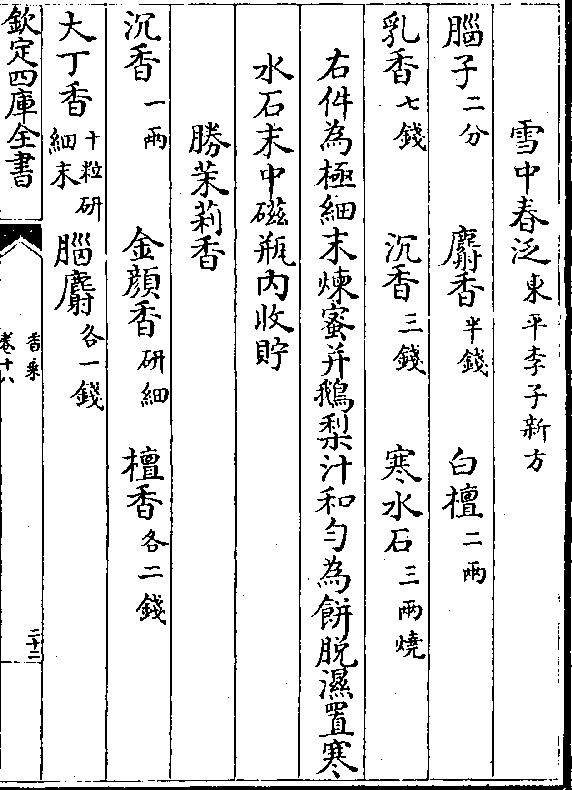 雪中春泛東平李子新方
腦子二分 麝香半錢 白檀二兩
乳香七錢 沉香三錢 寒水石三兩燒
右件為極細末煉蜜并鵝梨汁和勻為餅脱濕置寒
水石末中磁瓶内收貯
勝茉莉香
沉香一兩 金顔香研細 檀香各二錢
大丁香十粒研細末 腦麝各一錢
欽定四庫全書
香乘
卷十八
二十二